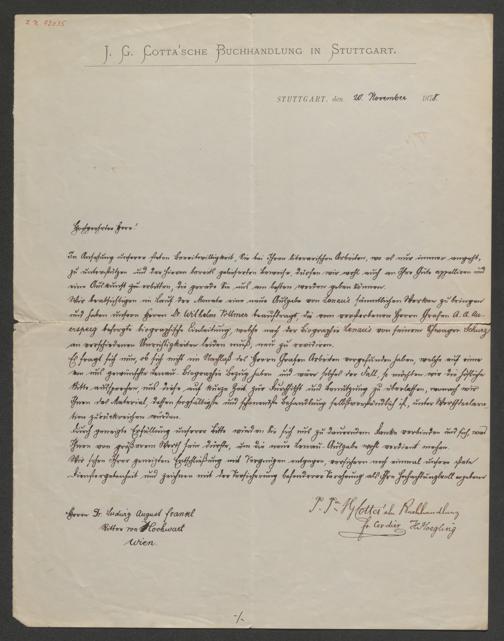 J. G. COTTA'SCHE BUCHHANDLUNG IN STUTTGART.
STUTTGART, den 20. November 1878.
Hochgeehrter Herr!
In Ansehung unserer steten Bereitwilligkeit, Sie bei Ihren literarischen Arbeiten, wo es nur immer angeht,
zu unterstützen und der hievon bereits gelieferten Beweise, dürfen wir wohl auch an Ihre Güte appelliren und
eine Auskunft zu erbitten, die gerade Sie uns am besten werden geben können.
Wir beabsichtigen im Laufe der Monate eine neue Ausgabe von Lenau's sämmtlichen Werken zu bringen
und haben unsern Herrn Dr Wilhelm Vollmer beauftragt, die vom verstorbenen Herrn Grafen A. A. Au-
ersperg besorgte biographische Einleitung, welche nach der Biographie Lenau's von seinem Schwager Schurz
an verschiedenen Unrichtigkeiten leiden muß, neu zu revidiren.
Es fragt sich nun, ob sich nicht im Nachlaß des Herrn Grafen Arbeiten vorgefunden haben, welche auf eine
von uns gewünschte Lenau-Biographie Bezug haben und wäre solches der Fall, so möchten wir die höfliche
Bitte aussprechen, uns diese auf kurze Zeit zur Einsicht und Benützung zu überlassen, wonach wir
Ihnen das Material, dessen sorgfältigste und schonendste Behandlung selbstverständlich ist, unter
zurückreichen würden.
Durch geneigte Erfüllung unserer Bitte würden Sie sich uns zu dauerndem Danke verbinden und sich, was
Ihnen von größerem Werth sein dürfte, um die neue Lenau-Ausgabe recht verdient machen.
Wir sehen Ihrer geneigten Entschließung mit Vergnügen entgegen, versichern noch einmal unsere stete
Dienstergebenheit und zeichnen mit der Versicherung besonderer Verehrung als Ihre hochachtungsvoll ergebene
J. G. Cotta'sche Buchhandlung
Herrn Dr. Ludwig August Frankl
Ritter von Hochwart
Wien